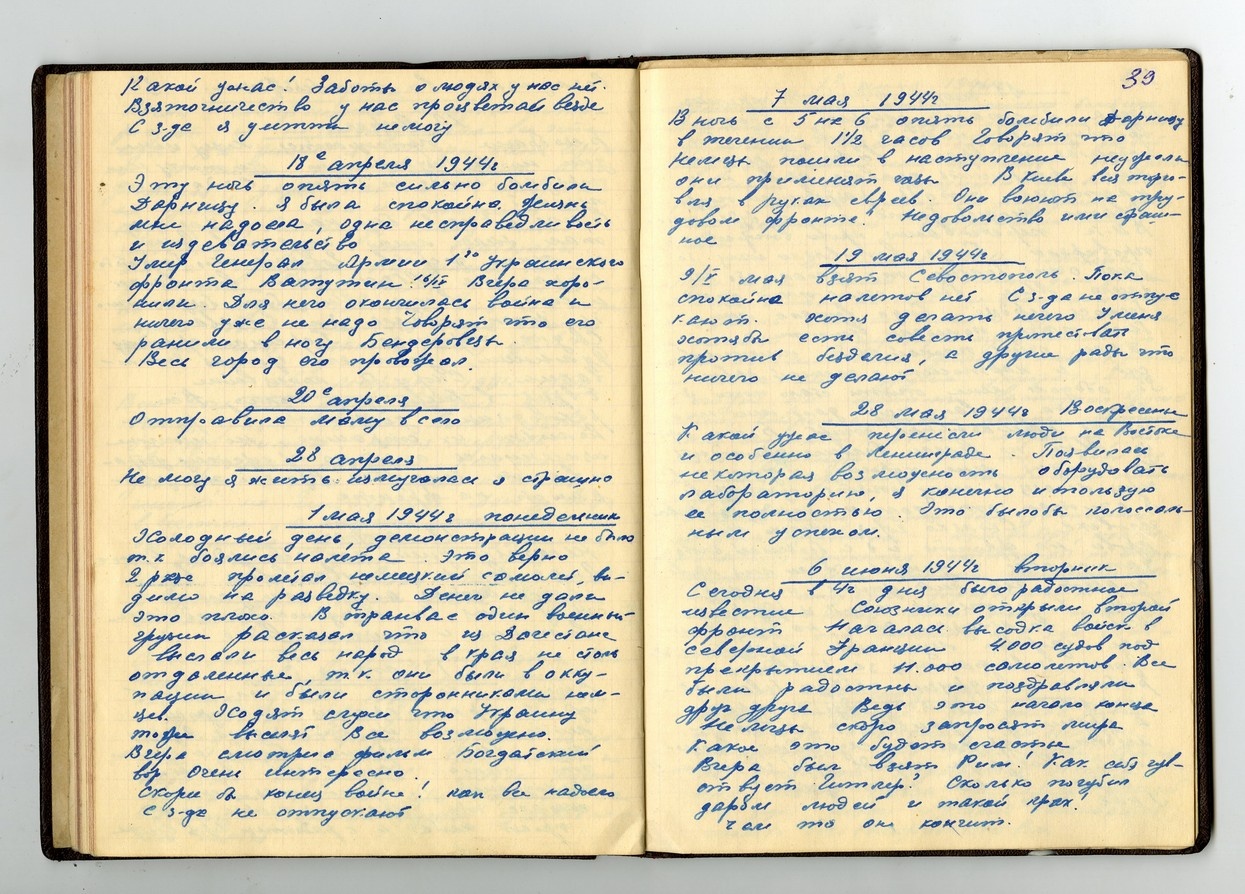 Какой ужас! Заботы о людях у нас нет.
Взяточничество у нас процветает везде
С з-да я уйти не могу
18е апреля 1944г
Эту ночь опять сильно бомбили
Дарницу. Я была спокойна. Жизнь
мне надоела, одна несправедливость
и издевательство
Умер Генерал Армии 1го Украинского
фронта Ватутин 16/IV Вчера хоро-
нили. Для него окончилась война и
ничего уже не надо Говорят что его
ранили в ногу Бендеровцы.
Весь город его провожал.
20е апреля
Отправила маму в село
28 апреля
Не могу я жить измучалась я страшно
1 мая 1944г понедельник
Холодный день, демонстрации не было
т.к боялись налета. Это верно
2 раза пролетал немецкий самолет, ви-
димо на разведку. Денег не дали
это плохо. В трамвае один военный
грузин расказал что из Дагестана
выслали весь народ в края не столь
отдаленные т.к. они были в окку-
пации и были сторонниками нем-
цев. Ходят слухи что Украину
тоже вышлют Все возможно.
Вчера смотрели фильм Богдатский
вор Очень интересно.
Скорей бы конец войне! как все надоело
С з-да не отпускают
39
7 мая 1944г
В ночь с 5 на 6 опять бомбили Дарницу
в течении 1 1/2 часов Говорят что
немцы пошли в наступление неужели
они применят газы В Киеве вся торго-
вля в руках евреев. Они воюют на "тру-
довом фронте" Недовольство ими страш-
ное
19 мая 1944г
9/V мая взят Севостополь. Пока
спокойно налетов нет С з-да не отпус
кают. хотя делать нечего У меня
хотябы есть совесть протестовать
против безделия, а другие рады что
ничего не делают
28 мая 1944г Воскресение
Какой ужас перенесли люди на Востоке
и особенно в Ленинграде. Появилась
некоторая возможность оборудовать
лабораторию, я конечно использую
ее полностью. Это былобы колоссаль-
ным успехом.
6 июня 1944г вторник
Сегодня в 4ч дня было радостное
известие Союзники открыли второй
фронт Началась высодка войск в
северной Франции 4000 судов под
прекрытием 11.000 самолетов. Все
были радостны и поздравляли
друг друга Ведь это начало конца
Немцы скоро запросят мира
Какое это будет счастье
Вчера был взят Рим! Как себя чув-
ствует Гитлер? Сколько погубил
даром людей и такой крах!
Чем то он кончит.